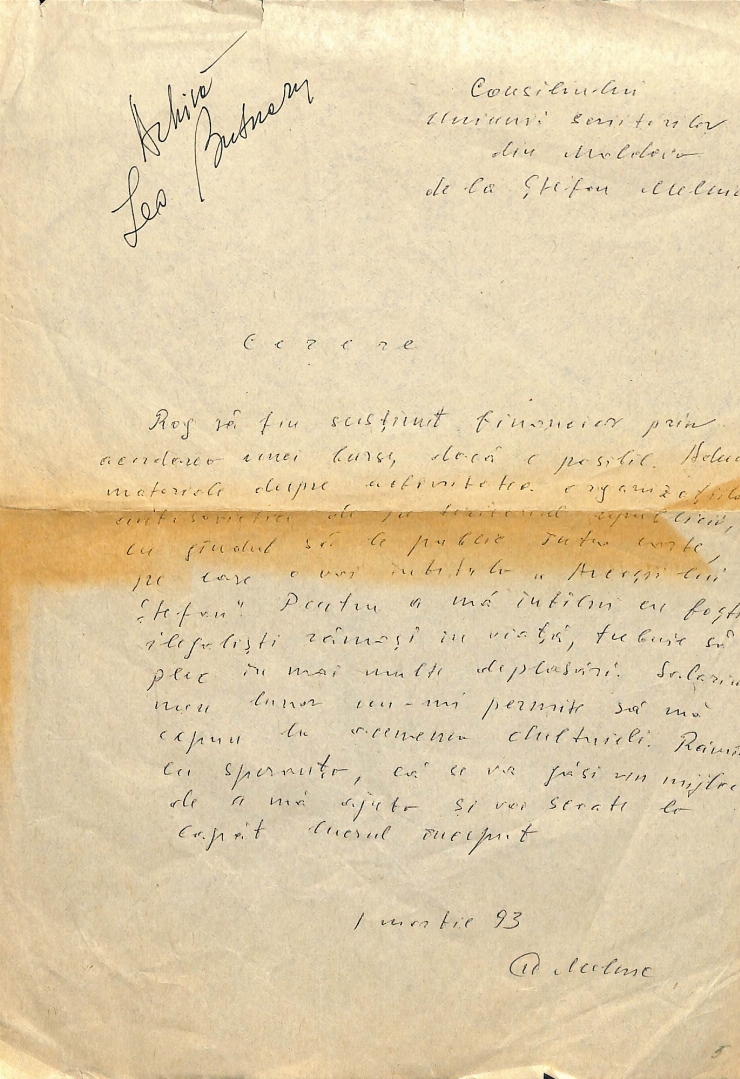 Arhivă
Leo Butnaru
Consiliului
Uniunii Scriitorilor
din Moldova
de la Ștefan Melnic
Cerere
Rog să fiu susținut financiar prin
acordarea unei burse, dacă e posibil. Adun
materiale despre activitatea organizațiilor
antisovietice de pe teritoriul republicii,
cu gîndul să le public într-o carte,
pe care o voi intitula „Arcașii lui
Ștefan". Pentru a mă întîlni cu foști
ilegaliști rămași în viață, trebuie să
plec în mai multe deplasări. Salariul
meu lunar nu-mi permite să mă
expun la asemenea cheltuieli. Rămîn
cu speranța, că se va găsi un mijloc
de a mă ajuta și voi scoate la
capăt lucrul început
1 martie 93
Melnic
5